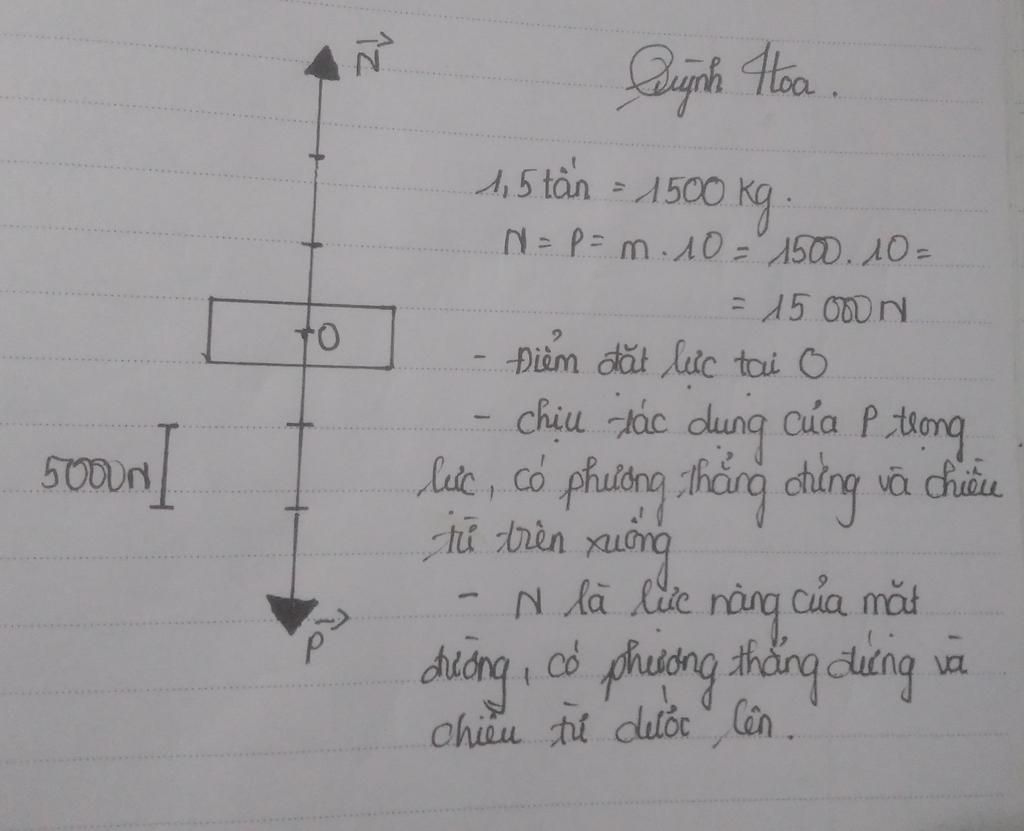 N
Quỳnh Hoa.
1,5 tấn = 1500 kg.
N = P = m . 10 = 1500 . 10 =
= 15 000 N
O
- Điểm đặt lực tại O
- chịu tác dụng của P trọng
lực, có phương thẳng đứng và chiều
từ trên xuống
5000N
- N là lực nâng của mặt
đường, có phương thẳng đứng và
chiều từ dưới lên.
P